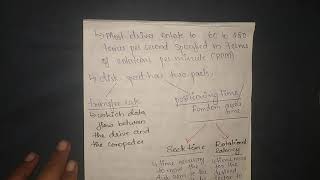 → Most drives rotate to 60 to 250
times per second specified in terms
of rotations per minute (RPM)
→ disk speed has two parts.
transfer rate
positioning time
random access
time
→ which data
flow between
the drive and
the computer
Seek time
Rotational
latency
→ time necessary
to move the
disk arm to the
→ time
for the
desired
sector to